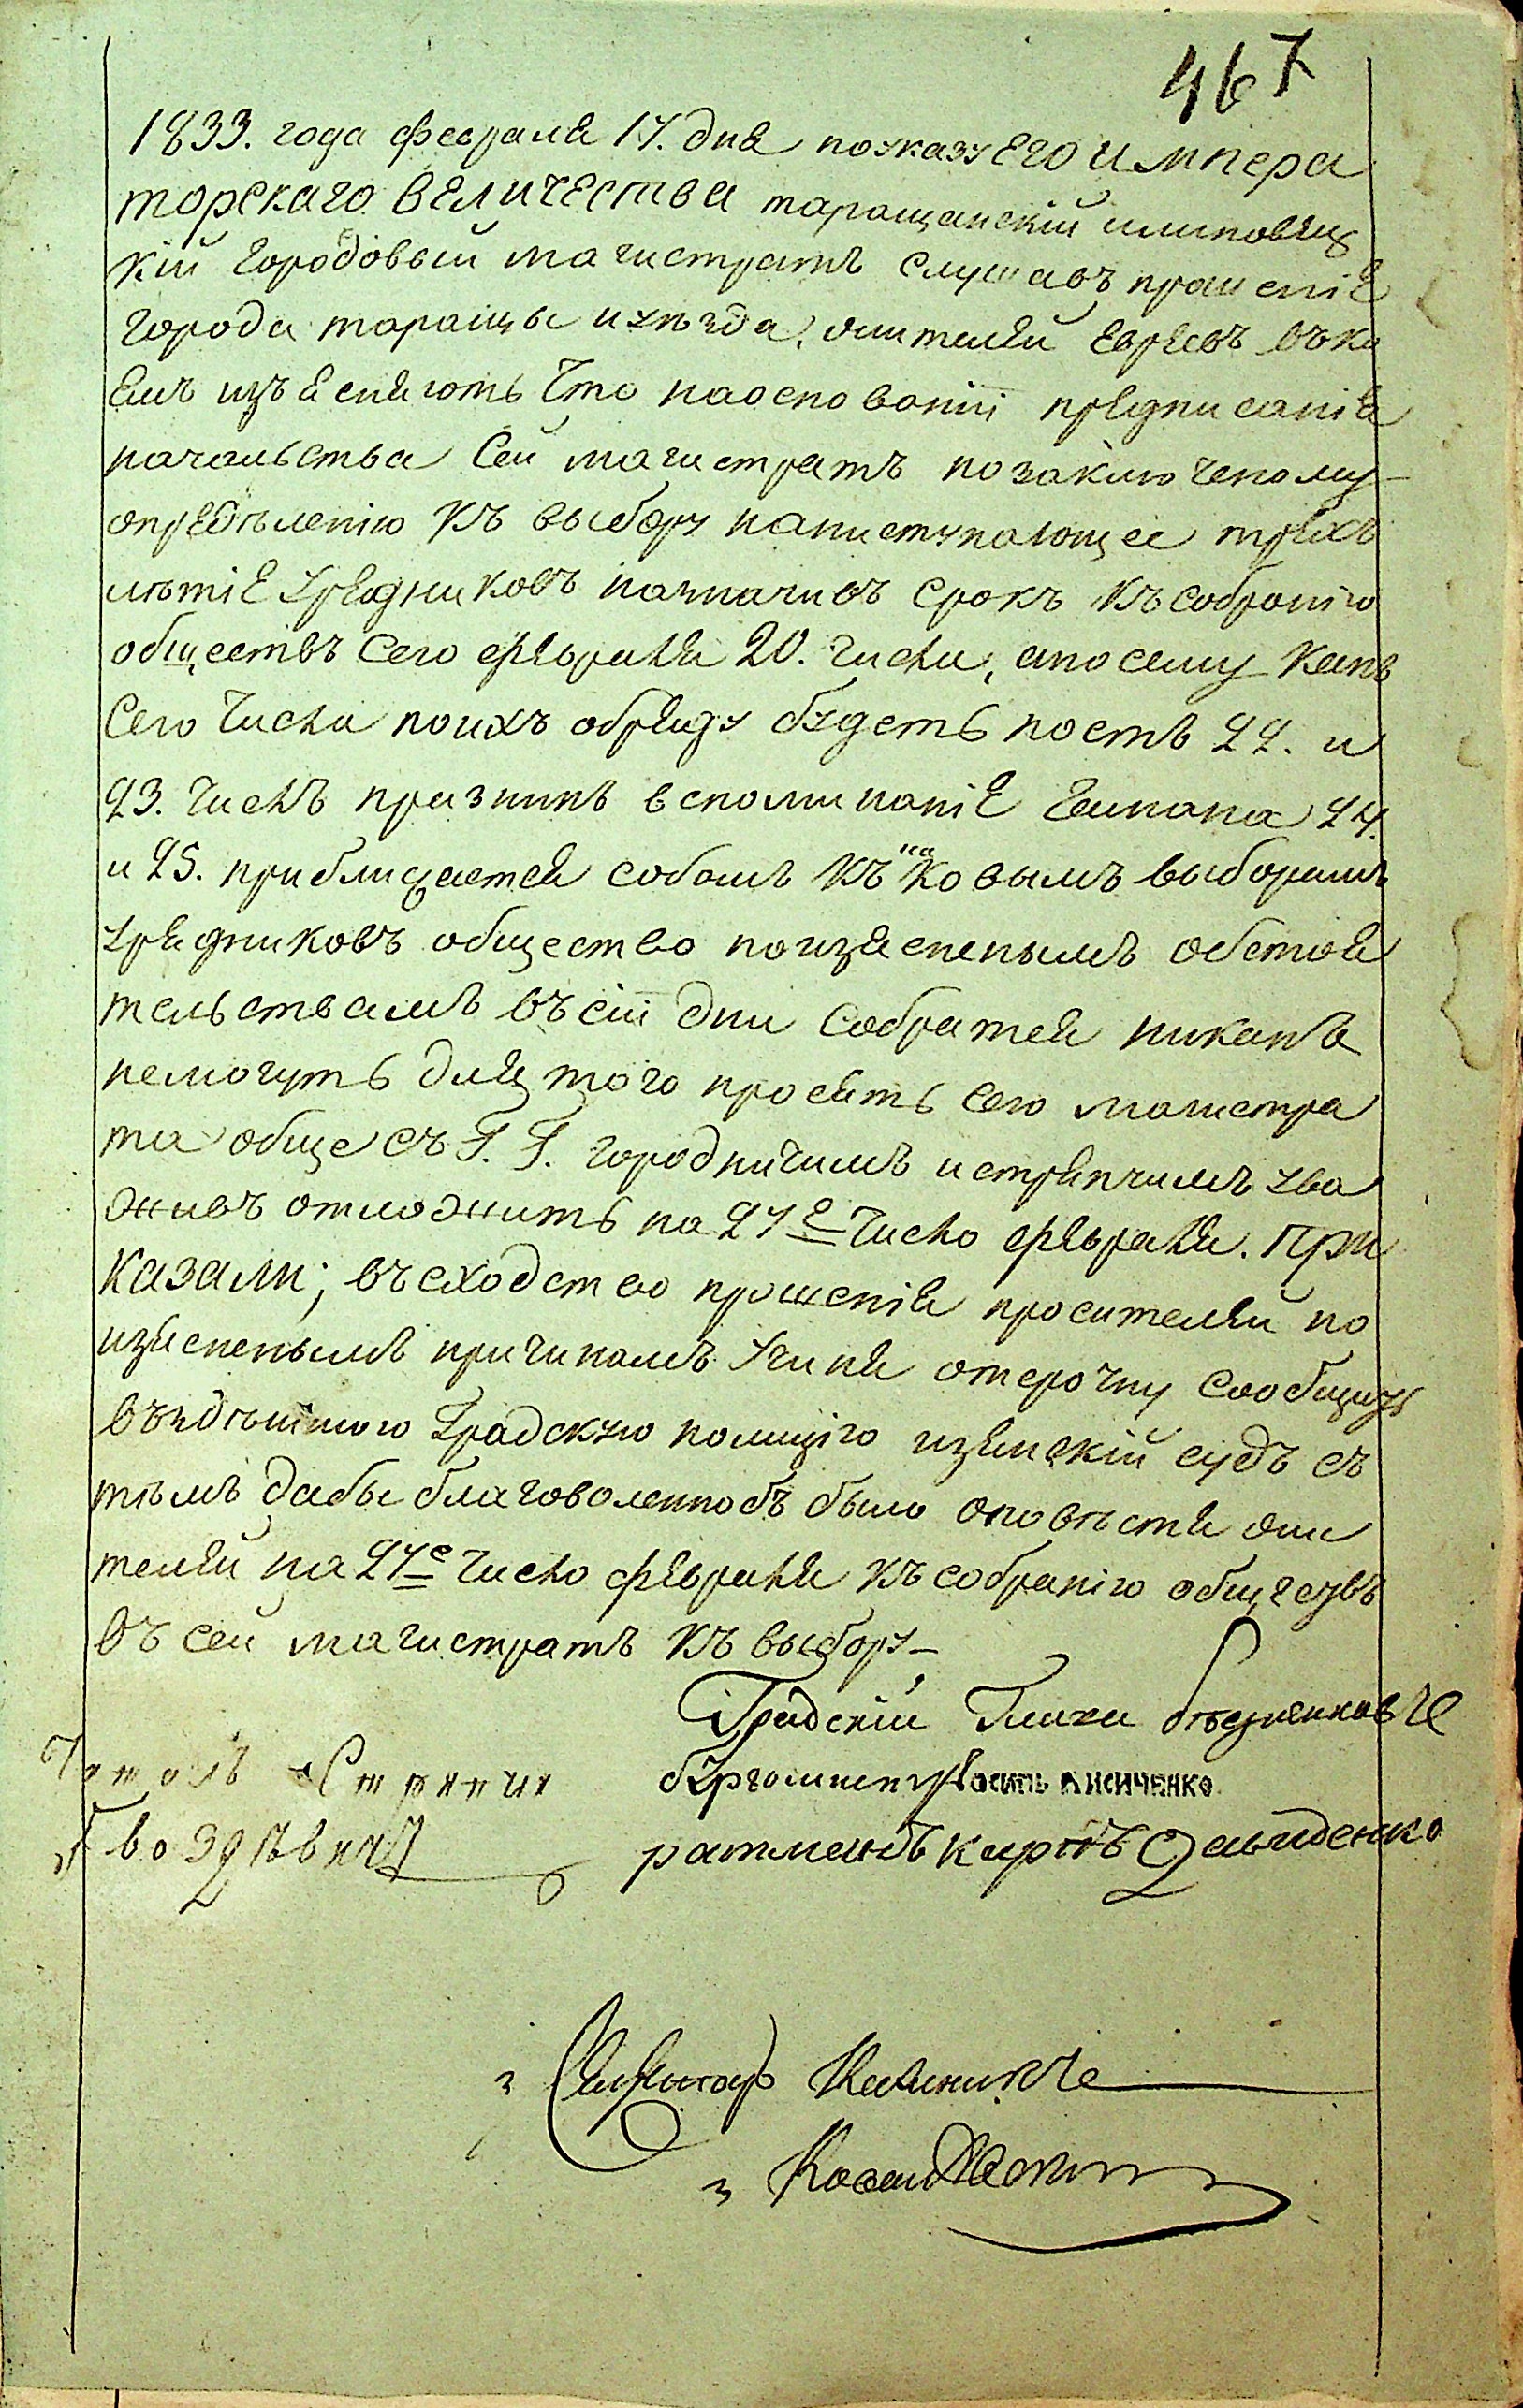 467
1833. года февраля 17. дня поуказу Его Импера
торскаго Величества таращанскій илиповец
кій городовый магистратъ слушавъ прошеніе
города таращы иуѣзда, жителей Евреевъ въко
емъ изъясняють Что наоснованіи предписанія
начальства Сей магистратъ позаключеному
опредѣленію Къ выбору нанаступающее трехъ
лѣтіе урядниковъ назначивъ срокъ Къ собранію
обществъ Сего февраля 20. числа, апосему Какъ
Сего Числа поихъ обряду будетъ постъ 22. и
23. Числъ празникъ вспоминаніе Гамана 24.
и 25. приближается собомъ Къ
Ковымъ выборамъ
урядниковъ общество поизяснеnымъ обстоя
тельствамъ въсіи дни собратся никакъ
немогутъ для того просятъ сего магистра
та обще съ Г. Г. городничимъ истряпчимъ ува
живъ отложить на 27е Число февраля. При
казали; въсходство прошенія просителей по
изясненымъ причинамъ учиня отсрочку сообщить
въздѣшнюю Градскую полицію изѣмскій судъ съ
тѣмъ дабы благоволенnобъ было оповѣстя жи
телей на 27е Число февраля Къ собранію обществъ
въ сей магистратъ Къ выбору
Градскій Глава
Читалъ Стряпчи
Гвоздѣвичъ
бургомистръ Йосипь Лисиченко
ратманъ Карпъ Давиденко
Секретарь